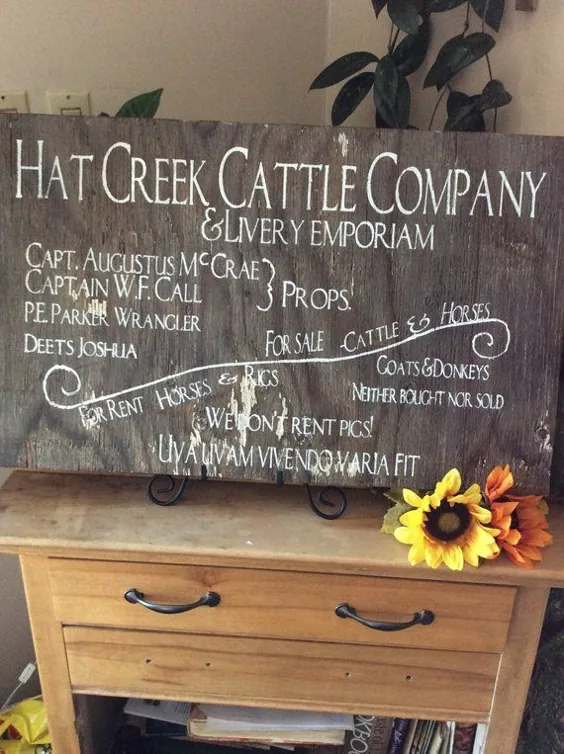 HAT CREEK CATTLE COMPANY
& LIVERY EMPORIAM
CAPT. AUGUSTUS McCRAE
CAPTAIN W.F. CALL
PROPS.
P.E. PARKER WRANGLER
DEETS JOSHUA
FOR SALE - CATTLE & HORSES
GOATS & DONKEYS
NEITHER BOUGHT NOR SOLD
FOR RENT HORSES & RIGS
WE DON'T RENT PIGS!
UVA UVAM VIVENDO VARIA FIT